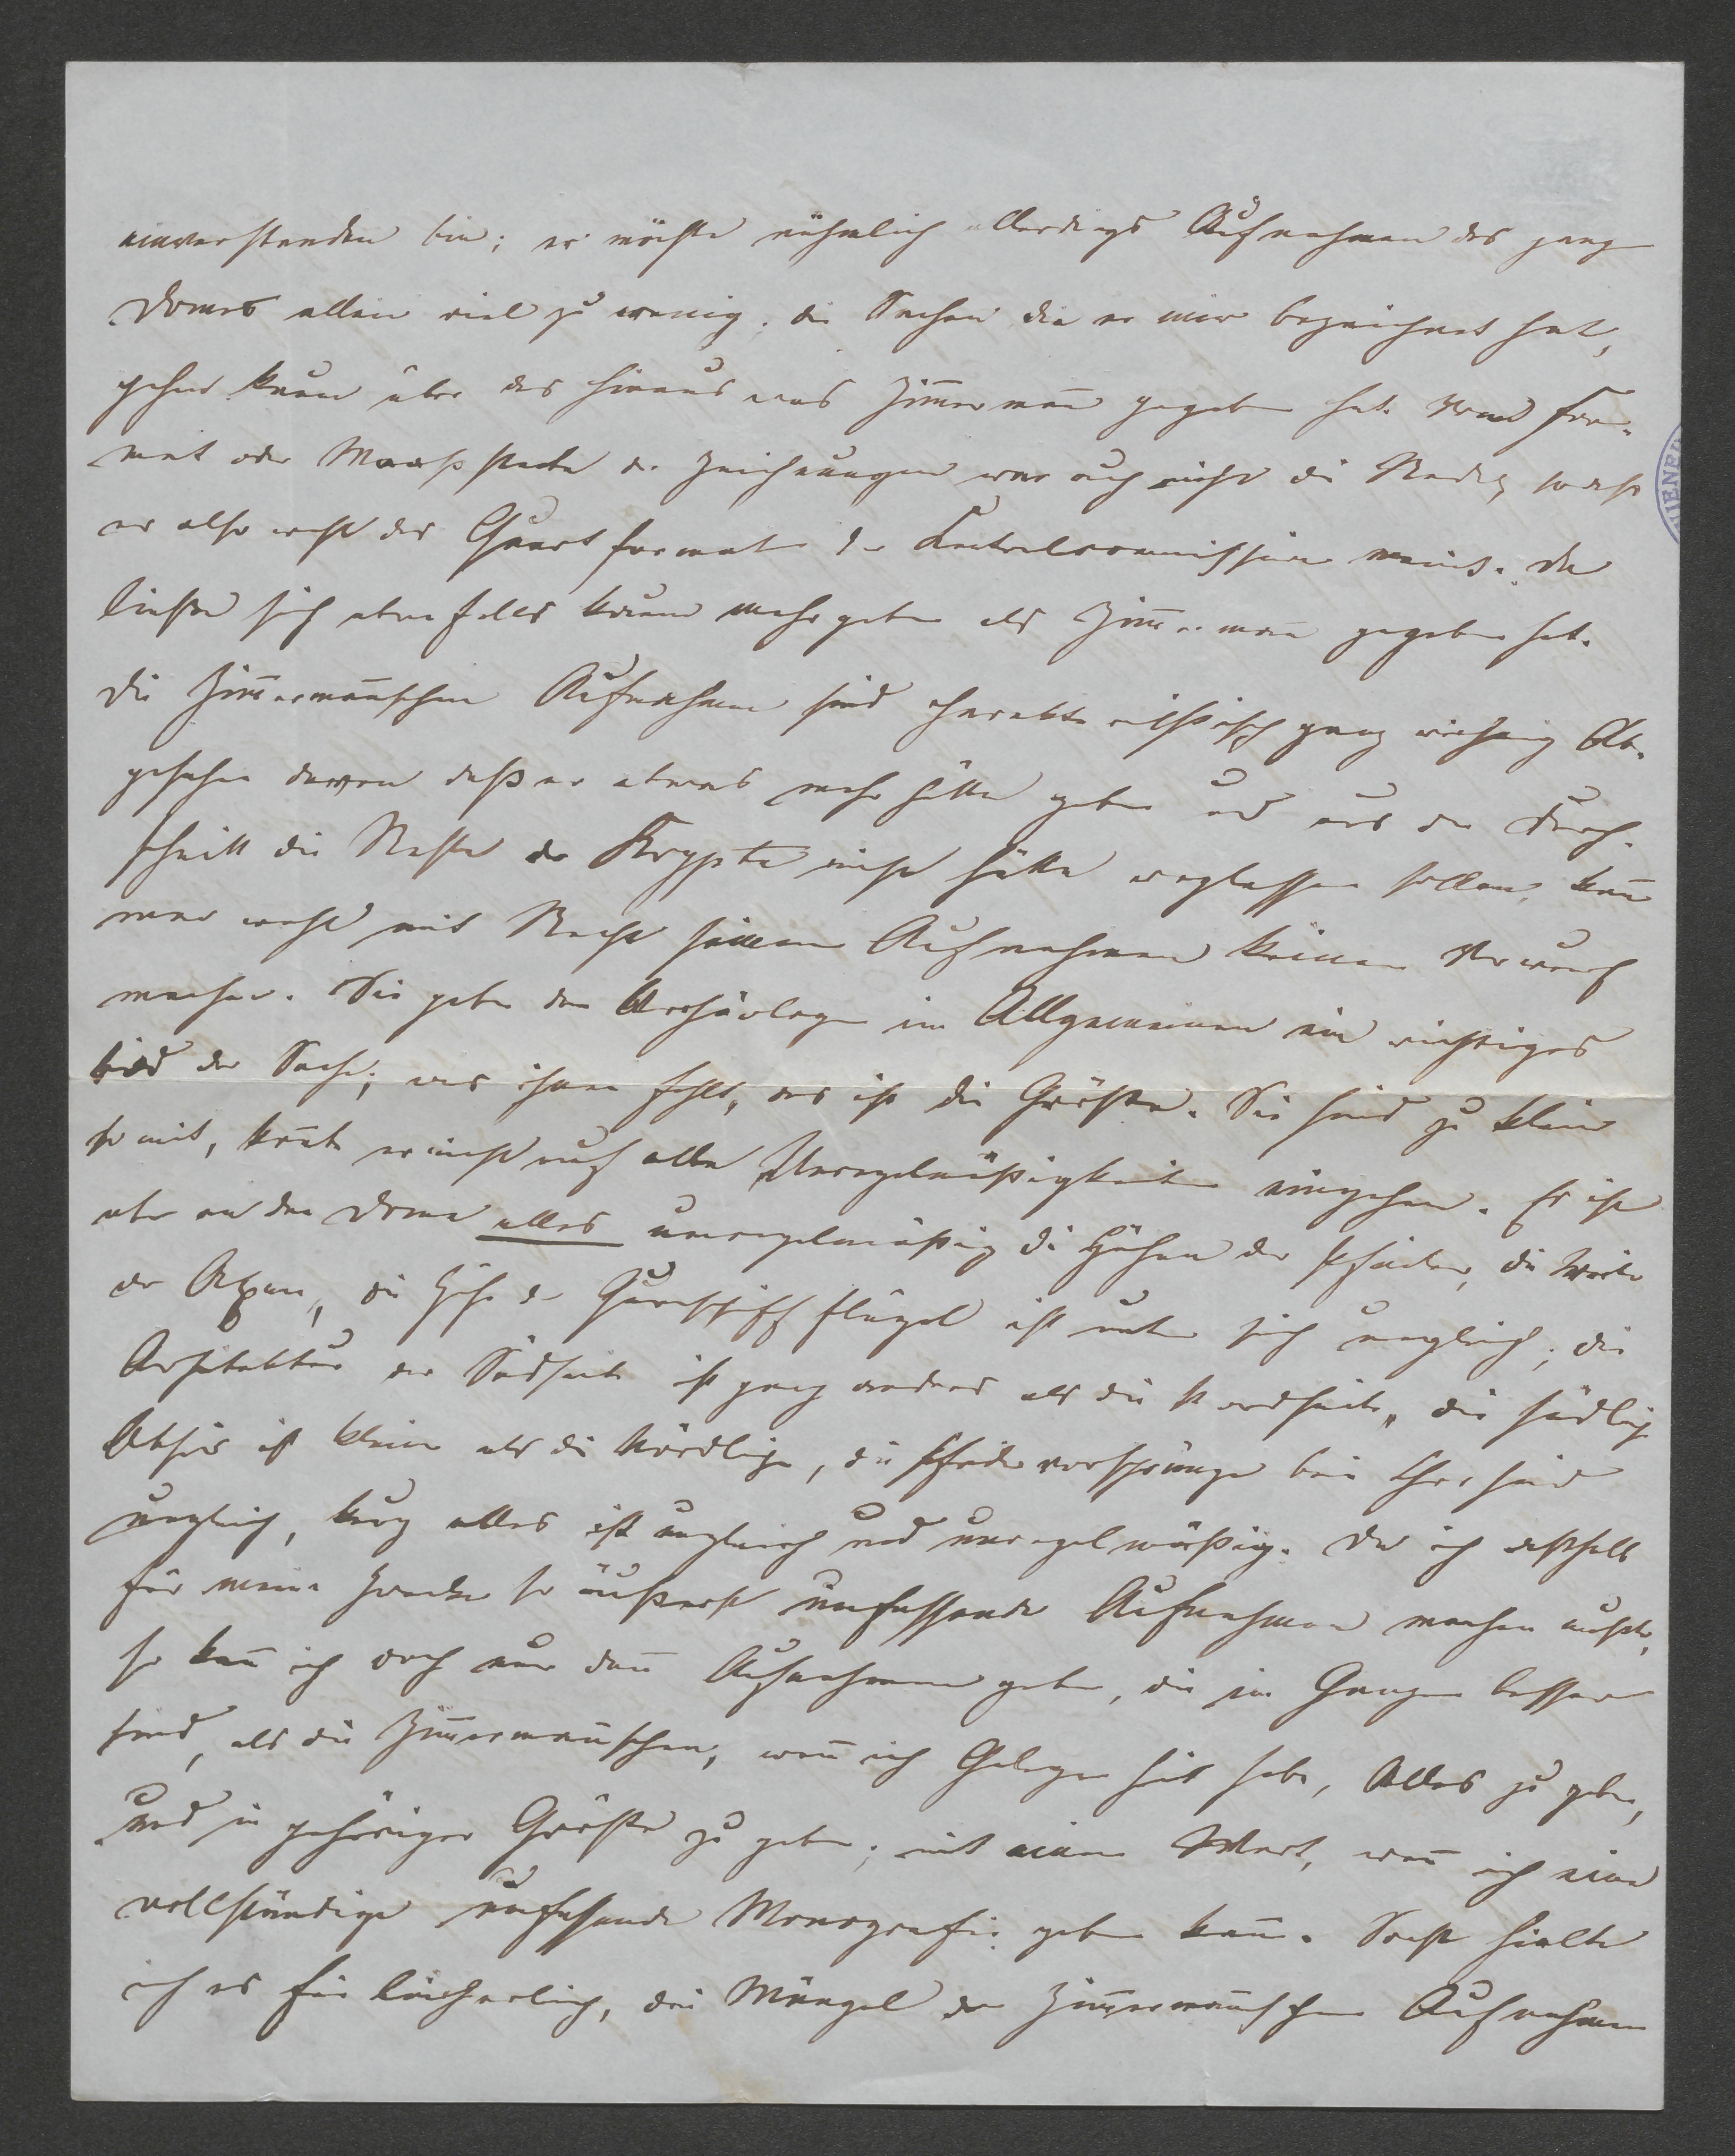 einverstanden bin; er möchte nähmlich allerdings Aufnahmen des ganzen
Domes allein viel zu wenig; die Sachen die er mir bezeichnet hat,
gehen kaum über das hinaus was Zim̅erman̅ gegeben hat. Vom For-
mat oder Maaßstabe der Zeichnungen war auch nicht die Rede, so daß
er also wohl das Quartformat der Centralcommission meint. Da
ließen sich ebenfalls kaum mehr geben als Zim̅erman̅ gegeben hat.
Die Zim̅erman̅schen Aufnahmen sind charakteristisch ganz richtig. Ab-
gesehen davon daß er etwas mehr hätte geben und aus dem Durch-
schnitt die Reste der Krypta nicht hätte weglassen sollen, kan̅
man wohl mit Recht seinen Aufnahmen keinen Vorwurf
machen. Sie geben dem Archäologen im Allgemeinen ein richtiges
Bild der Sache; was ihnen fehlt, das ist die Größe. Sie sind zu klein
somit, kon̅te er nicht auf alle Unregelmäßigkeiten eingehen. Es ist
aber an dem Dome alles unregelmäßig die Höhen der Pfeiler, die Weite
der Axen, die Höhe der Querschiffflügel ist unter sich ungleich; die
Architektur der Südseite ist ganz anders als die Nordseite, die südliche
Absis ist kleiner als die nördliche, die Pfeilervorsprünge beim Chor sind
ungleich, kurz alles ist ungleich und unregelmäßig. Da ich deßhalb
für meine Zwecke so äußerst umfassende Aufnahmen machen mußte,
so kan̅ ich doch nur dan̅ Aufnahmen geben, die im Ganzen besser
sind, als die Zim̅erman̅schen, wen̅ ich Gelegenheit habe, Alles zu geben,
und in gehöriger Größe zu geben; mit einem Wort, wen̅ ich eine
vollständige umfassende Monografie geben kan̅. Sonst hielte
ich es für lächerlich, die Mängel der Zim̅erman̅schen Aufnahmen